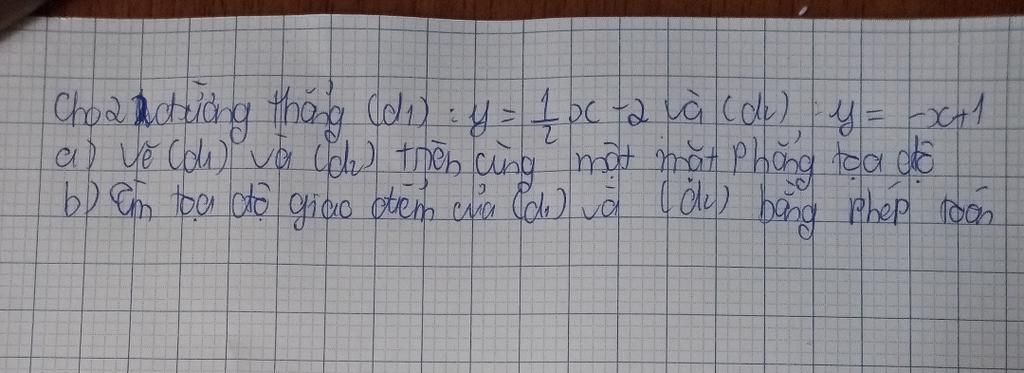 Cho 2 đường thẳng (d1) : y = 1/2 x - 2 và (d2) : y = -x+1
a) Vẽ (d1) và (d2) trên cùng một mặt phẳng tọa độ
b) Tìm tọa độ giao điểm của (d1) và (d2) bằng phép toán